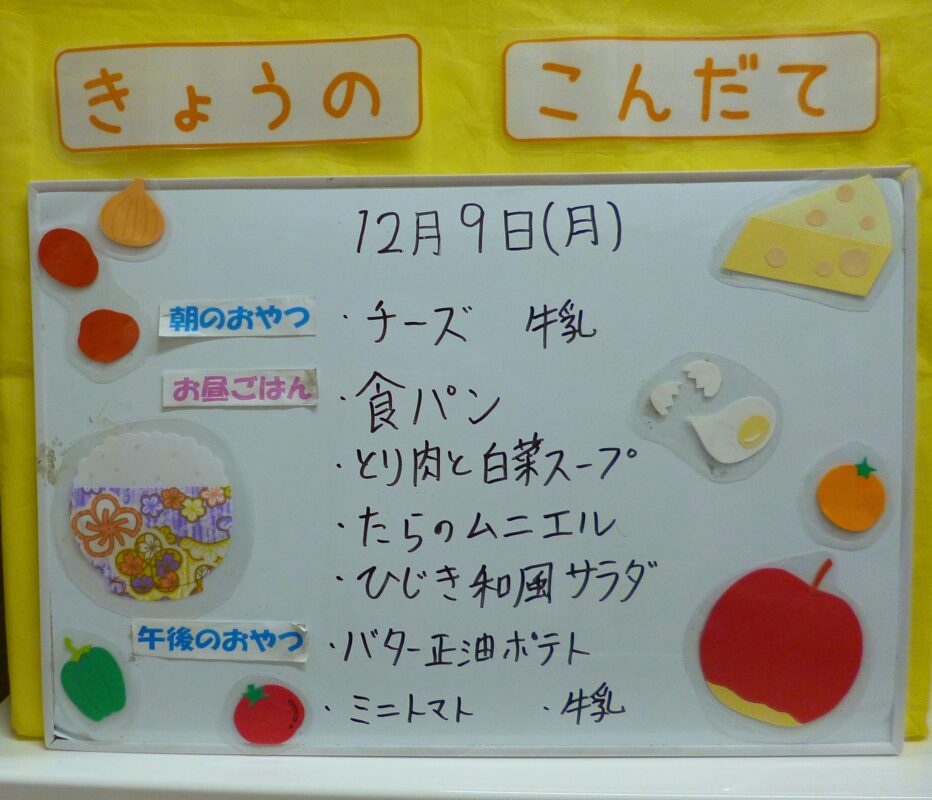 きょうの こんだて
12月9日(月)
朝のおやつ ・チーズ 牛乳
お昼ごはん ・食パン
・とり肉と白菜スープ
・たらのムニエル
・ひじき和風サラダ
午後のおやつ ・バター正油ポテト
・ミニトマト ・牛乳